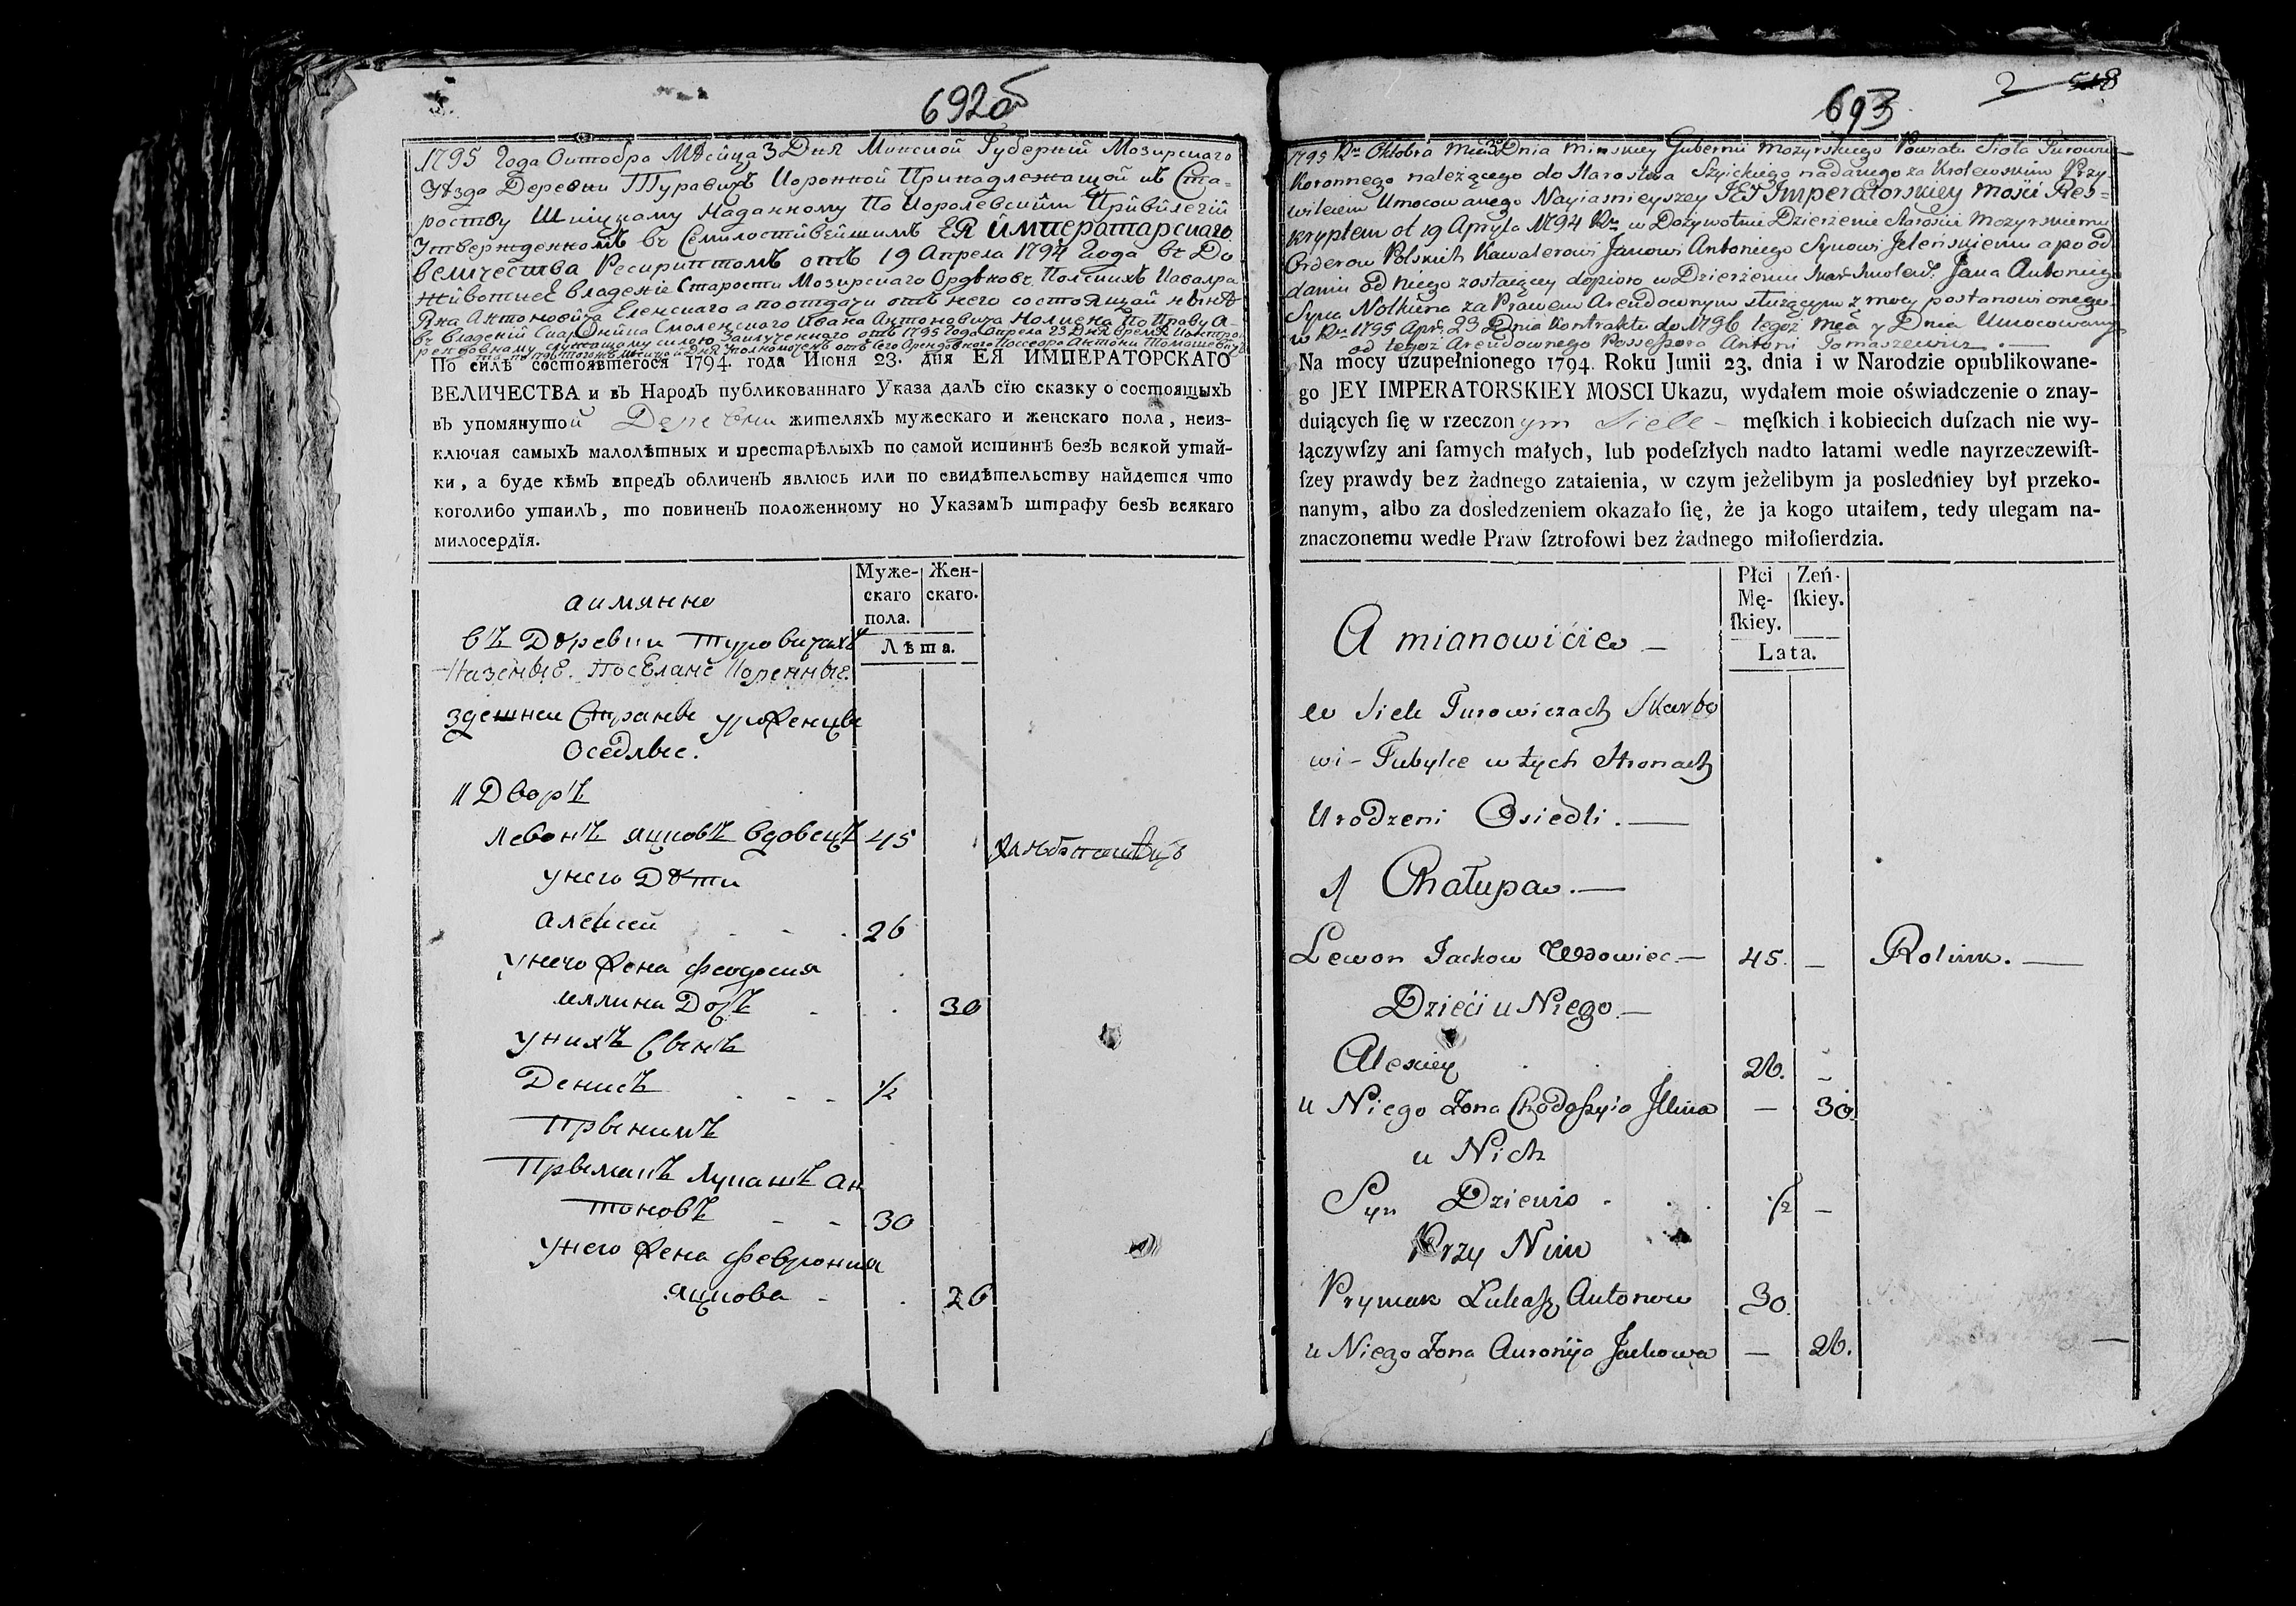 692об
1795 Года Октобра Мѣсяца 3 Дня Минской Губерніи Мозирскаго
Уѣзда Деревни Туравичъ Коронной Принадлежащой къ Ста-
роству Шицкому Наданному По Королевскимъ Привилегіи
Утвержденномъ въ Семилостивейшимъ ЕЯ императарскаго
величества Рескриптомъ отъ 19 Апреля 1794 Года въ До
животнеЕ владеніе Старости Мозирскаго Орденовъ Полскихъ Кавалера
Яна Антоновича Еленскаго а по отдачи отъ него состоящай нынѣ
въ владеніи Смоленскаго Ивана Антоновича По Праву А-
рендовному служащому силою Заключеннаго отъ 1795 Года Апреля 23 Дня
По силѣ состоявшегося 1794. года Июня 23. дня ЕЯ ИМПЕРАТОРСКАГО
ВЕЛИЧЕСТВА и въ Народъ публикованнаго Указа далъ сїю сказку о состоящыхъ
въ упомянутой Деревни жителяхъ мужескаго и женскаго пола, неиз-
ключая самыхъ малолѣтных и престарѣлыхъ по самой истиннѣ безъ всякой утай-
ки, а буде кѣмъ впредь обличенъ явлюсь или по свидѣтельству найдется что
коголибо утаилъ, то повиненъ положенному по Указамъ штрафу безъ всякаго
милосердїя.
Муже-
скаго
пола.
Жен-
скаго.
Лѣта.
аимянно
въ Деревни Туровичахъ
Казеные Поселане Коренные
здешней Странѣ уроженцы
Оседлые.
1 Дворъ
Левонъ яцковъ вдовецъ 45
у него Дѣти
алексей 26
у него жена феодосия
илина Дочъ 30
у нихъ сынъ
Денисъ 1/2
При нимъ
Примакъ Лукашъ Ан
тоновъ 30
у него жена феврония
яцкова 26
693
2 518
1795 Ru Oktobra Mca 3 Dnia Minskiey Gubernii Mozyrskiego Powiatu Siola Turowicz
Koronnego należącego do Starostwa Szyickiego nadanego za Krolewskim Przy
wileiem Umocowanego Nayiasnieyszey JEY Imperatorskiey Mości Res-
kryptem ot 19 Apryla 1794 Ru w Dożywotnie Dzierżenie Staroście Mozyrskiemu
Orderow Polskich Kawalerowi Janowi Antoniego Synowi Jeleńskiemu a po od
daniu od Niego zostaiącey dopioro w Dzierżeniu Jana Antoniego
Syna Nolkina za Prawem Arendownym służącym z mocy postanowionego
w Ru 1795 Apr. 23 Dnia Kontraktu do 1796 tegoż Mca y Dnia Umocowany
od tegoż Arendownego Possessora Antoni Tomaszewicz.
Na mocy uzupełnionego 1794. Roku Junii 23. dnia i w Narodzie opublikowane-
go JEY IMPERATORSKIEY MOSCI Ukazu, wydałem moie oświadczenie o znay-
duiących ſię w rzeczonym Siele - męſkich i kobiecich duſzach nie wy-
łączywſzy ani ſamych małych, lub podeſzłych nadto latami wedle nayrzeczewiſt-
ſzey prawdy bez żadnego zataienia, w czym jeżelibym ja posledniey był przeko-
nanym, albo za dosledzeniem okazało ſię, że ja kogo utaiłem, tedy ulegam na-
znaczonemu wedle Praw ſztrofowi bez żadnego miłoſierdzia.
Płci
Mę-
ſkiey.
Zeń-
ſkiey.
Lata.
A mianowićie -
w Siele Turowiczach Skarbo
wi - Tubylce w tych Stronach
Urodzeni Osiedli. -
1 Chałupa. -
Lewon Jackow Wdowiec - 45. - Rolnik. -
Dzieći u Niego. -
Alexiey 26. -
u Niego Żona Chodoſzyia Jllina - 30.
u Nich
Syn Dzienis 1/2 -
Przy Nim
Prymak Łukaſz Antonow 30.
u Niego Żona Auronija Jackowa - 26.